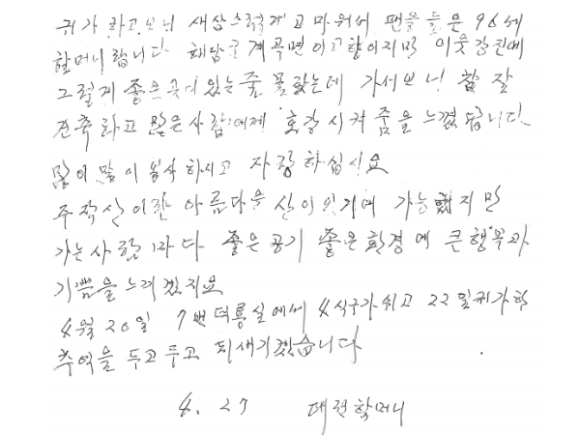 귀가 하고보니 새삼스럽게 고마워서 팬을 들은 96세
할머니랍니다 해남군 계곡면이 고향이지만 이웃 강진에
그렇게 좋은곳이 있는줄 몰랐는데 가서보니 참 잘
건축하고 많은사람에게 호강시켜줌을 느꼈답니다.
많이 많이 홍보하시고 자랑하십시요
주작산이란 아름다운 산이 있기에 가능했지만
가는사람마다 좋은공기 좋은환경에 큰행복과
기쁨을 느끼겠지요
4월 20일 7번 덕룡실에서 4식구가 쉬고 22일귀가하
추억을 두고두고 되새기겠습니다
4. 27 대전할머니